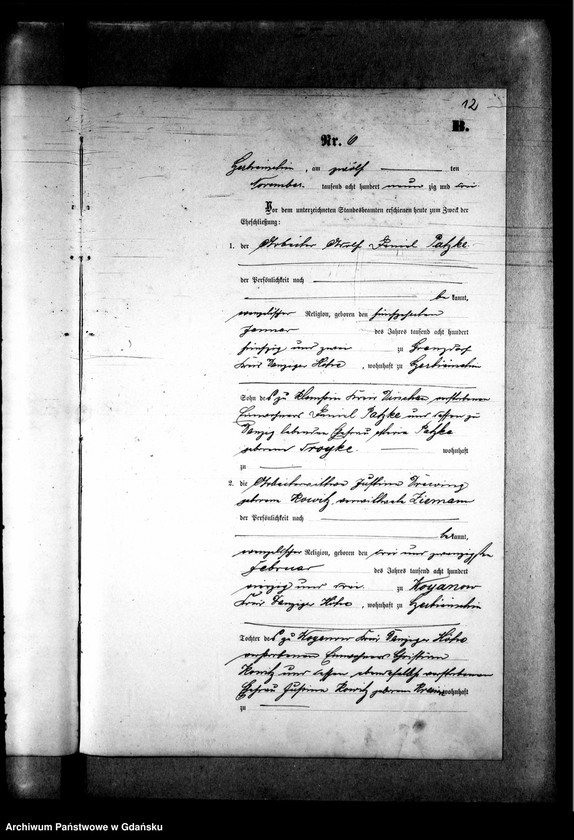 12
B.
Nr. 6
am zwölf ten
November tausend acht hundert neunzig und drei
Vor dem unterzeichneten Standesbeamten erschienen heute zum Zweck der
Eheschließung:
1. der Arbeiter Adolf Daniel Patzke
der Persönlichkeit nach
be kannt,
evangelischer Religion, geboren den fünfzehnten
Januar des Jahres tausend acht hundert
fünfzig und zwei zu
Kreis Danziger Höhe, wohnhaft zu
Sohn des zu Kreis Dirschau verstorbenen
Einwohners Daniel Patzke und dessen zu
Danzig lebenden Ehefrau Patzke
geborene wohnhaft
zu
2. die Arbeiterwittwe Justine Drewing
geborene Kowitz, verwittwete Ziemann
der Persönlichkeit nach
be kannt,
evangelischer Religion, geboren den drei und zwanzigsten
Februar des Jahres tausend acht hundert
vierzig und drei zu Koyanow
Kreis Danziger Höhe, wohnhaft zu
Tochter des zu Koyanow Kreis Danziger Höhe
verstorbenen Einwohners Christian
Kowitz und dessen ebendaselbst verstorbenen
Ehefrau Justine Kowitz geborene wohnhaft
zu
Archiwum Państwowe w Gdańsku